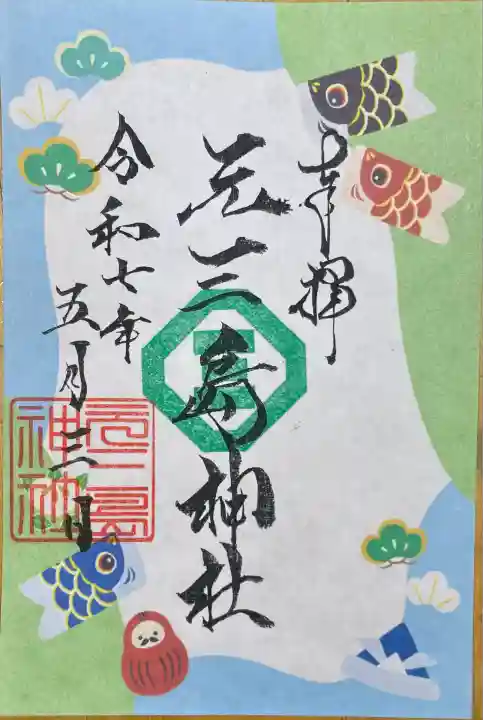 奉拝
元三島神社
令和七年
五月三日
元三島
神社
三